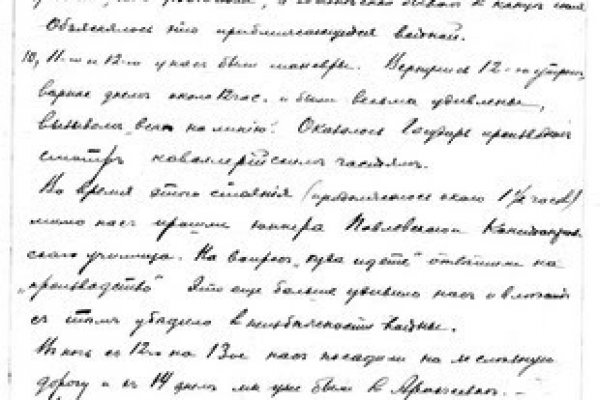 Объяснялось это приближающейся войной.
10, 11-го и 12-го у нас были маневры. Вернулись 12-го утром,
вернее днем около 12 час. и были весьма удивлены,
вызовом "всех на линию". Оказалось Государь производит
смотр кавалерийским частям.
Во время этого стояния (продолжалось около 1½ часов)
мимо нас прошли юнкера Павловского
ского училища. На вопрос "куда идете" ответили на
"производство". Это еще больше удивило нас и
с этим убедило в неизбежности войны.
В ночь с 12го на 13ое нас посадили на железную
дорогу и в 14 днем мы уже были в